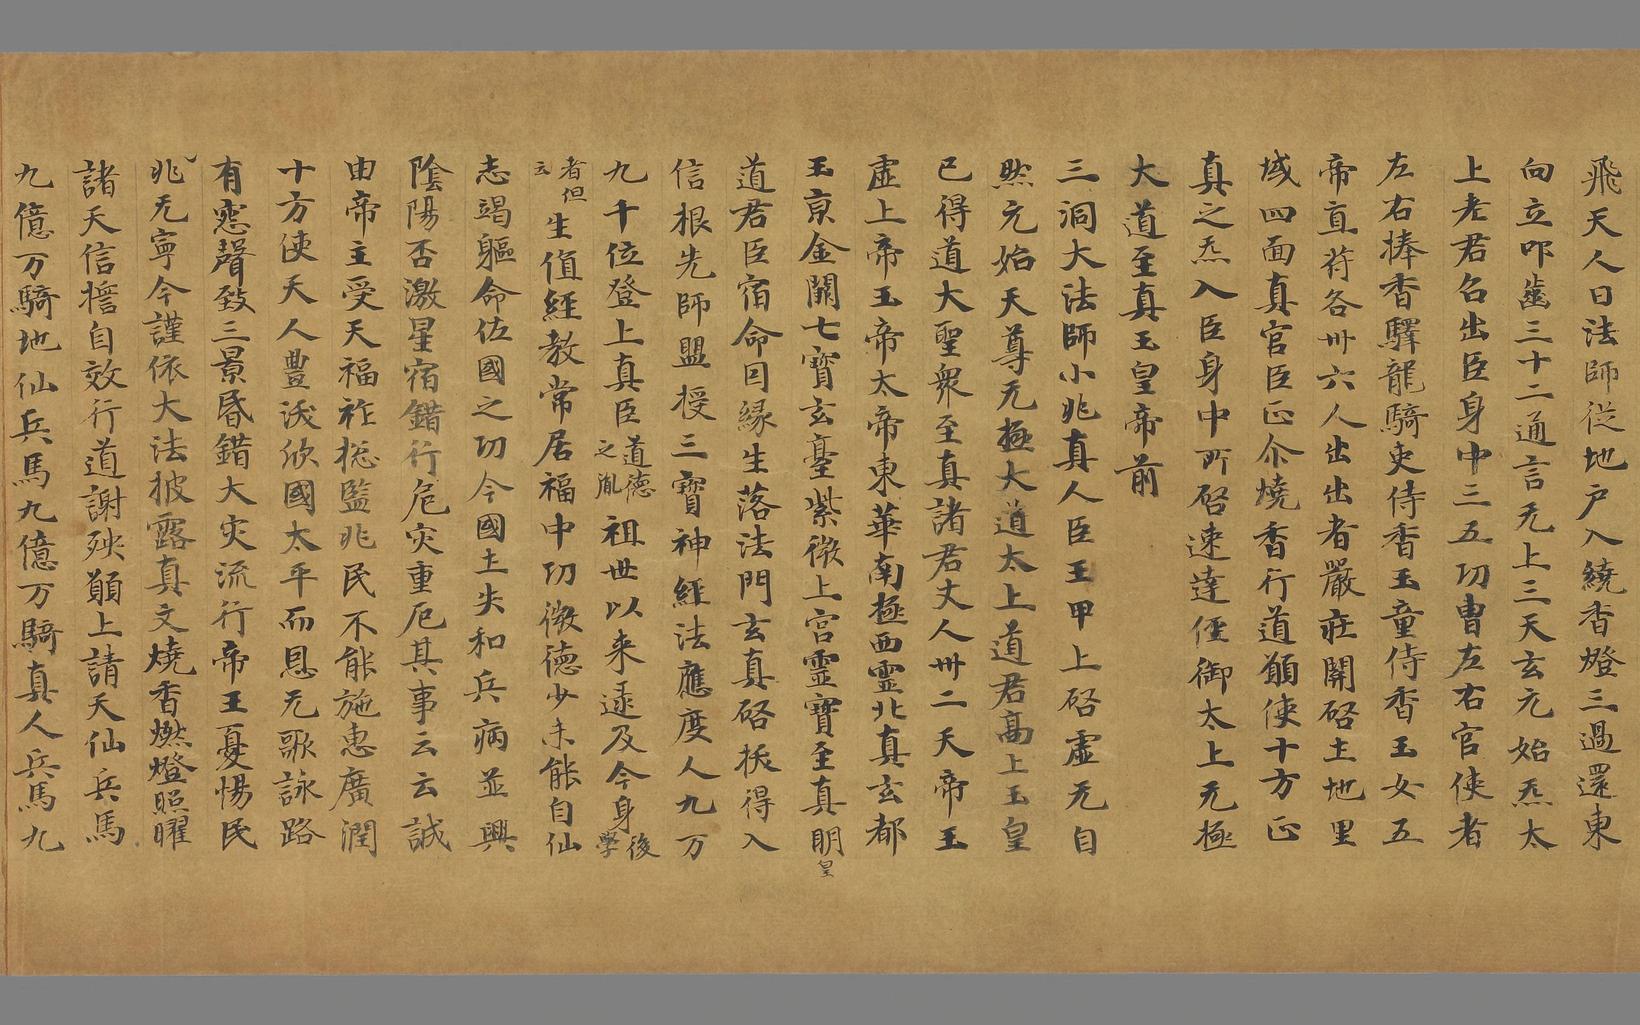 飛天人曰法師從地户入繞香燈三過還東
向立叩齒三十二通言无上三天玄元始炁太
上老君召出臣身中三五功曹左右官使者
左右捧香驛龍騎吏侍香玉童侍香玉女五
帝直符各卅六人出出者嚴莊關啓土地里
域四面真官臣正尒燒香行道願使十方正
真之炁入臣身中所啓速達俓御太上无極
大道至真玉皇帝前
三洞大法師小兆真人臣王甲上啓虛无自
然元始天尊无極大道太上道君高上玉皇
已得道大聖衆至真諸君丈人卅二天帝玉
虛上帝玉帝大帝東華南極西靈北真玄都
玉京金闕七寶玄臺紫微上宫靈寶至真明皇
道君臣宿命因緣生落法門玄真啓拔得入
信根先師盟授三寶神經法應度人九万
九千位登上真臣道德之胤祖世以来逮及今身後學
者但云生值經教常居福中功微德少未能自仙
志竭軀命佐國之功今國土失和兵病並興
隂陽否激星宿錯行危灾重厄其事云云誠
由帝主受天福祚摠監兆民不能施惠廣潤
十方使天人豐沃欣國太平而恩无歌詠路
有惌聲致三景昏錯大灾流行帝王憂惕民
兆无寧今謹依大法披露真文燒香燃燈照曜
諸天信擔自效行道謝殃願上請天仙兵馬
九億万騎地仙兵馬九億万騎真人兵馬九